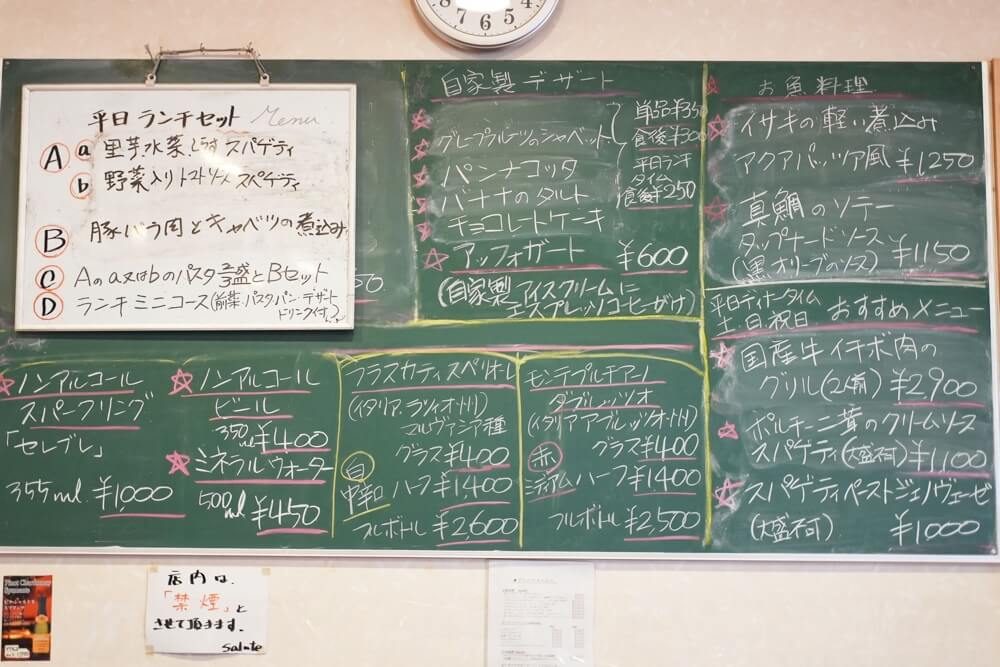 平日 ランチセット Menu
A a 里芋水菜しらす スパゲティ
b 野菜入りトマトソース スペゲティ
B 豚バラ肉とキャベツの煮込み
C Aのa又はbのパスタ 大盛とBセット
D ランチ ミニコース(前菜 パスタパン・デザート
ドリンク付)
自家製 デザート
グレープフルーツのシャーベット
パンナコッタ
バナナのタルト
チョコレートケーキ
単品¥350
食後¥300
平日ランチ
タイム
食後¥250
アッフォガート ¥600
(自家製 アイスクリームに
エスプレッソコーヒーがけ)
お魚料理
イサキの軽い煮込み
アクアパッツァ風 ¥1250
真鯛のソテー
タップナードソース
(黒オリーブのソース) ¥1150
平日ディナータイム
土、日、祝日 おすすめメニュー
国産牛イチボ肉の
グリル(2人前) ¥2900
ポルチーニ茸のクリームソース
スパゲティ(大盛不可) ¥1,100
スパゲティペーストジェノヴェーゼ
(大盛不可) ¥1000
ノンアルコール
スパークリング
「セレブレ」
355ml. ¥1,000
ノンアルコール
ビール
350ml ¥400
ミネラルウォーター
500ml ¥450
フラスカティスペリオーレ
(イタリア、ラツィオ州)
マルヴァジア種
白 グラス¥400
中辛口 ハーフ¥1400
フルボトル ¥2,600
モンテプルチアーノ
ダブルッツオ
(イタリアアブルッツオ州)
赤 グラス¥400
ミディアム ハーフ¥1400
フルボトル ¥2,500
店内は、
「禁煙」と
させて頂きます。
salute
Pinot Chardonnay
Spumante